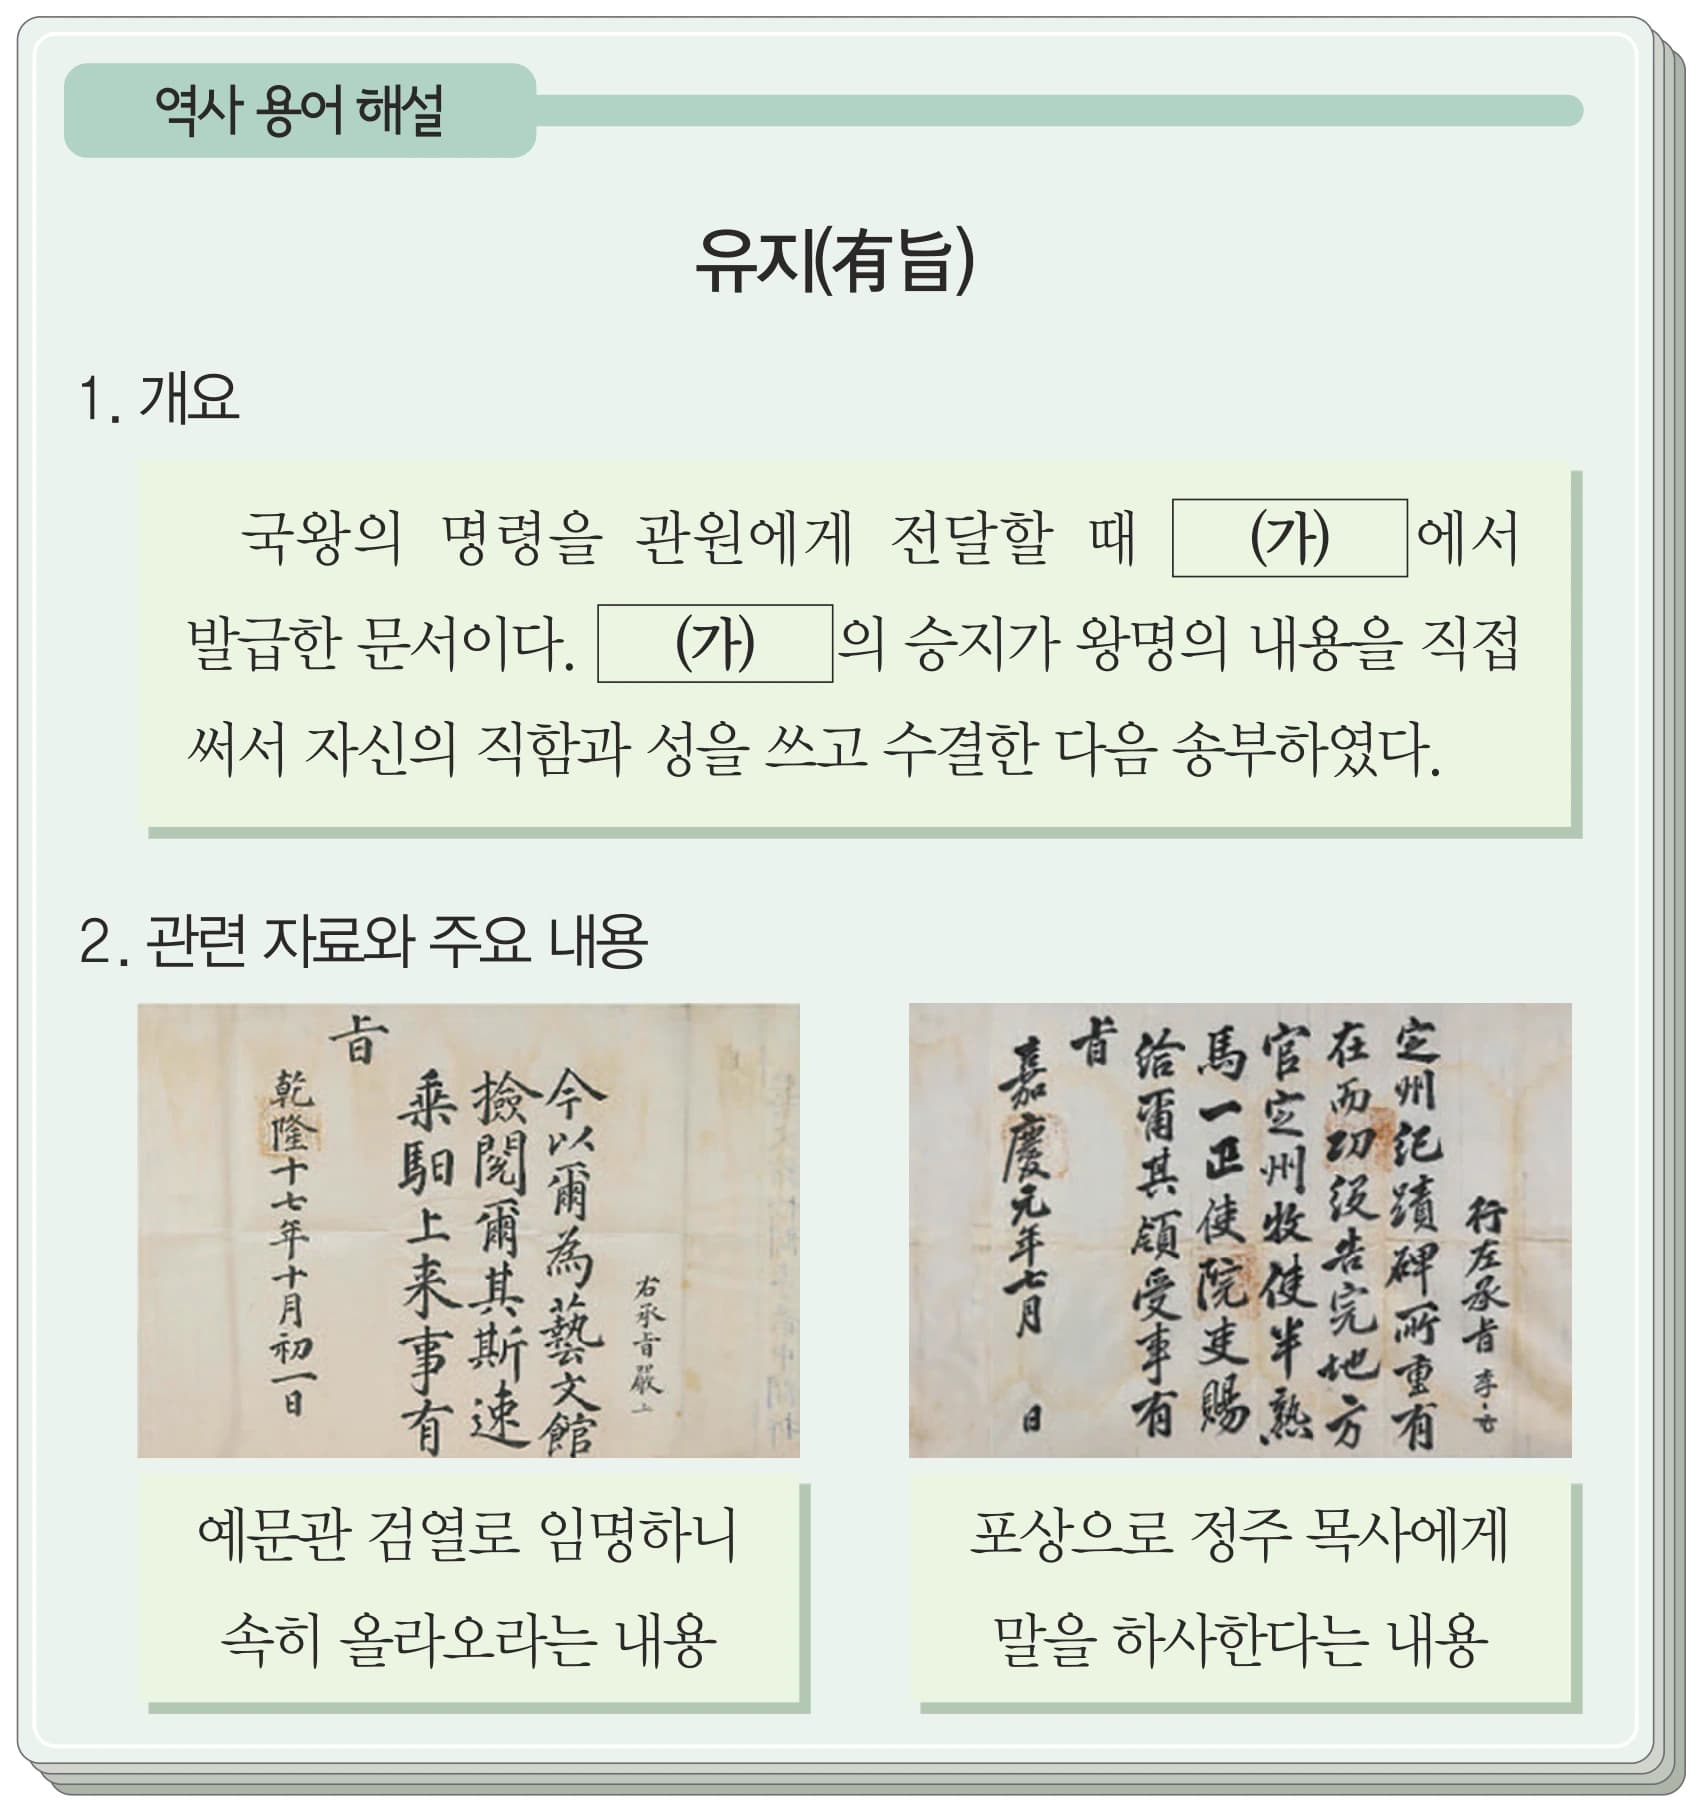 역사 용어 해설
유지(有旨)
1. 개요
국왕의 명령을 관원에게 전달할 때 (가)에서
발급한 문서이다. (가)의 승지가 왕명의 내용을 직접
써서 자신의 직함과 성을 쓰고 수결한 다음 송부하였다.
2. 관련 자료와 주요 내용
右承旨嚴
今以爾為藝文館
撿閱爾其斯速
乘馹上来事有
旨
乾隆十七年十月初一日
行左承旨李
定州紀蹟碑所重有
在而功役告完地方
官定州牧使半熟
馬一匹使院吏賜
給爾其領受事有
旨
嘉慶元年七月 日
예문관 검열로 임명하니
속히 올라오라는 내용
포상으로 정주 목사에게
말을 하사한다는 내용